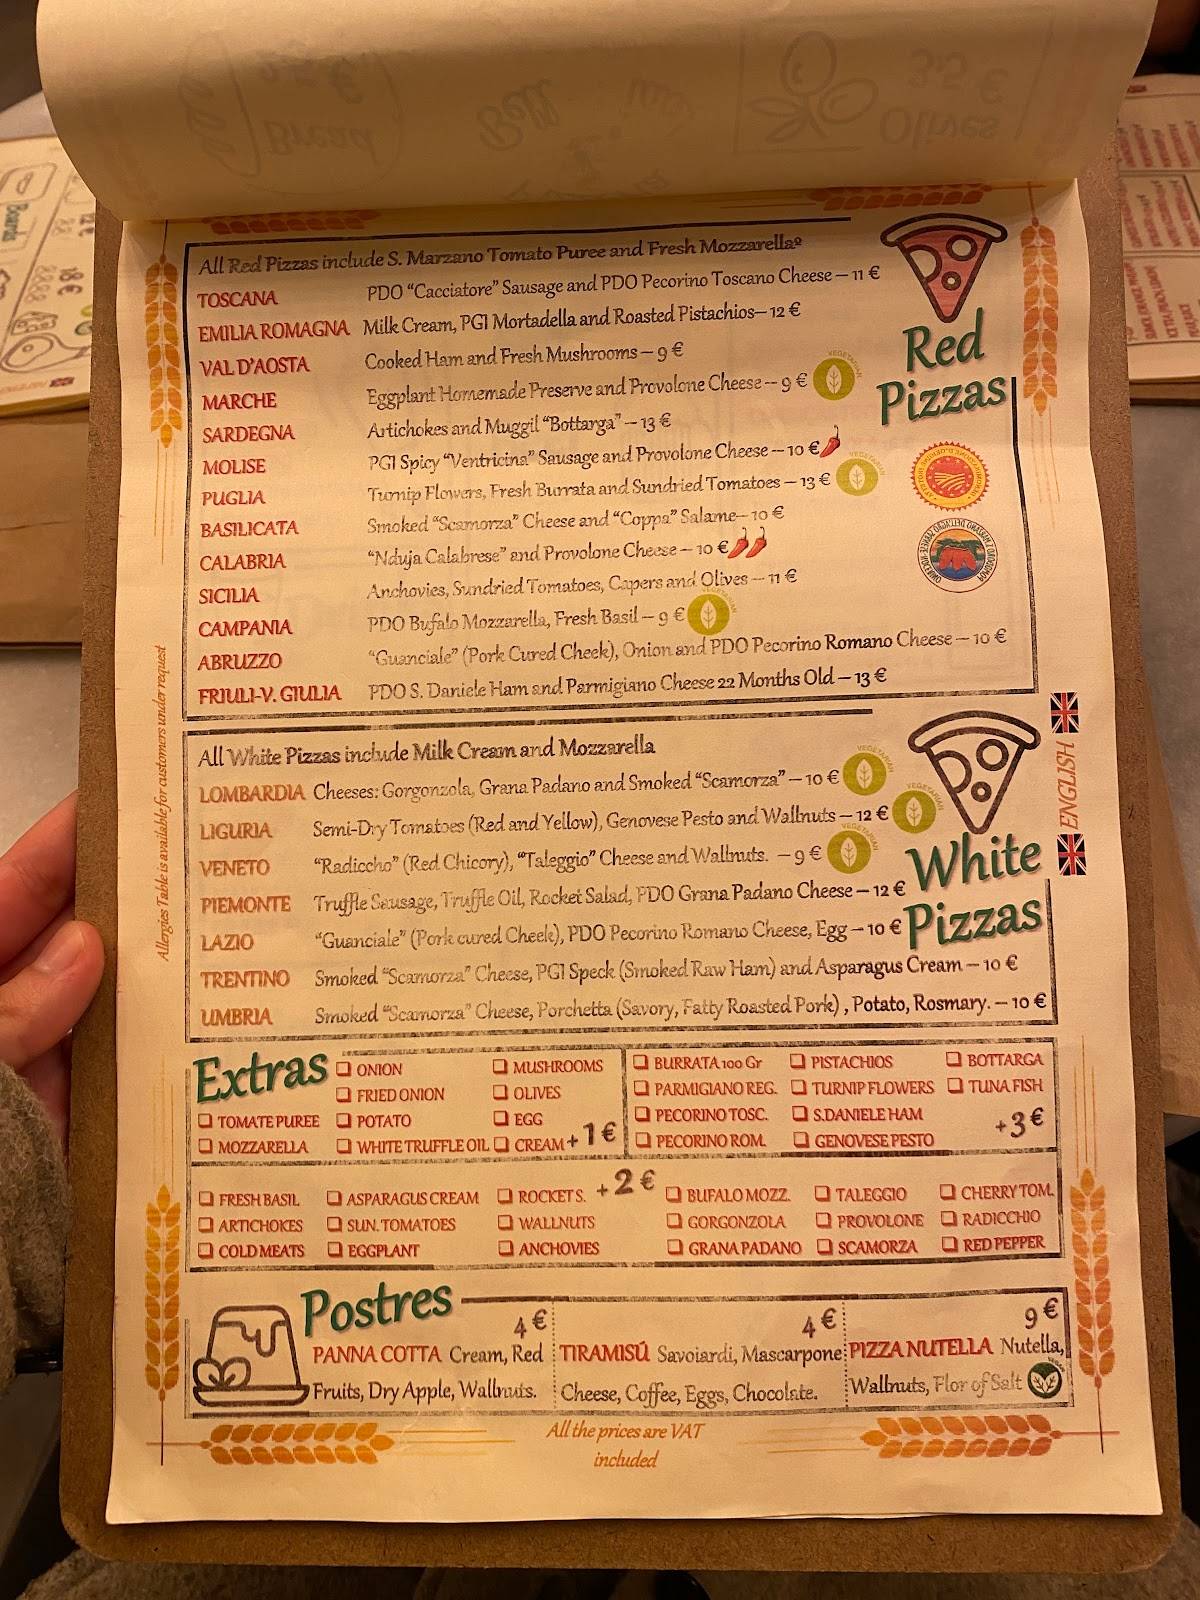 Bread
Ball
3.5 €
Olives
All Red Pizzas include S. Marzano Tomato Puree and Fresh Mozzarellaº
TOSCANA PDO “Cacciatore” Sausage and PDO Pecorino Toscano Cheese – 11 €
EMILIA ROMAGNA Milk Cream, PGI Mortadella and Roasted Pistachios– 12 €
VAL D'AOSTA Cooked Ham and Fresh Mushrooms – 9 €
MARCHE Eggplant Homemade Preserve and Provolone Cheese -- 9 €
VEGETARIAN
SARDEGNA Artichokes and Muggil “Bottarga” – 13 €
MOLISE PGI Spicy “Ventricina” Sausage and Provolone Cheese -- 10 €
PUGLIA Turnip Flowers, Fresh Burrata and Sundried Tomatoes – 13 €
VEGETARIAN
BASILICATA Smoked “Scamorza” Cheese and “Coppa” Salame– 10 €
CALABRIA “Nduja Calabrese” and Provolone Cheese – 10 €
SICILIA Anchovies, Sundried Tomatoes, Capers and Olives -- 11 €
CAMPANIA PDO Bufalo Mozzarella, Fresh Basil – 9 €
VEGETARIAN
ABRUZZO “Guanciale” (Pork Cured Cheek), Onion and PDO Pecorino Romano Cheese – 10 €
FRIULI-V. GIULIA PDO S. Daniele Ham and Parmigiano Cheese 22 Months Old – 13 €
Red
Pizzas
All White Pizzas include Milk Cream and Mozzarella
LOMBARDIA Cheeses: Gorgonzola, Grana Padano and Smoked “Scamorza” – 10 €
VEGETARIAN
LIGURIA Semi-Dry Tomatoes (Red and Yellow), Genovese Pesto and Wallnuts – 12 €
VEGETARIAN
VENETO “Radiccho” (Red Chicory), “Taleggio” Cheese and Wallnuts. – 9 €
VEGETARIAN
PIEMONTE Truffle Sausage, Truffle Oil, Rocket Salad, PDO Grana Padano Cheese – 12 €
LAZIO “Guanciale” (Pork cured Cheek), PDO Pecorino Romano Cheese, Egg – 10 €
TRENTINO Smoked “Scamorza” Cheese, PGI Speck (Smoked Raw Ham) and Asparagus Cream – 10 €
UMBRIA Smoked “Scamorza” Cheese, Porchetta (Savory, Fatty Roasted Pork) , Potato, Rosmary. – 10 €
White
Pizzas
ENGLISH
Allergies Table is available for customers under request
Extras
ONION MUSHROOMS
FRIED ONION OLIVES
TOMATE PUREE POTATO EGG
MOZZARELLA WHITE TRUFFLE OIL CREAM +1 €
BURRATA 100 Gr PISTACHIOS BOTTARGA
PARMIGIANO REG. TURNIP FLOWERS TUNA FISH
PECORINO TOSC. S.DANIELE HAM
PECORINO ROM. GENOVESE PESTO +3 €
+2 €
FRESH BASIL ASPARAGUS CREAM ROCKET S. BUFALO MOZZ. TALEGGIO CHERRY TOM.
ARTICHOKES SUN. TOMATOES WALLNUTS GORGONZOLA PROVOLONE RADICCHIO
COLD MEATS EGGPLANT ANCHOVIES GRANA PADANO SCAMORZA RED PEPPER
Postres
4 €
PANNA COTTA Cream, Red
Fruits, Dry Apple, Wallnuts.
4 €
TIRAMISÚ Savoiardi, Mascarpone
Cheese, Coffee, Eggs, Chocolate.
9 €
PIZZA NUTELLA Nutella,
Wallnuts, Flor of Salt
All the prices are VAT
included
Boards
18 €